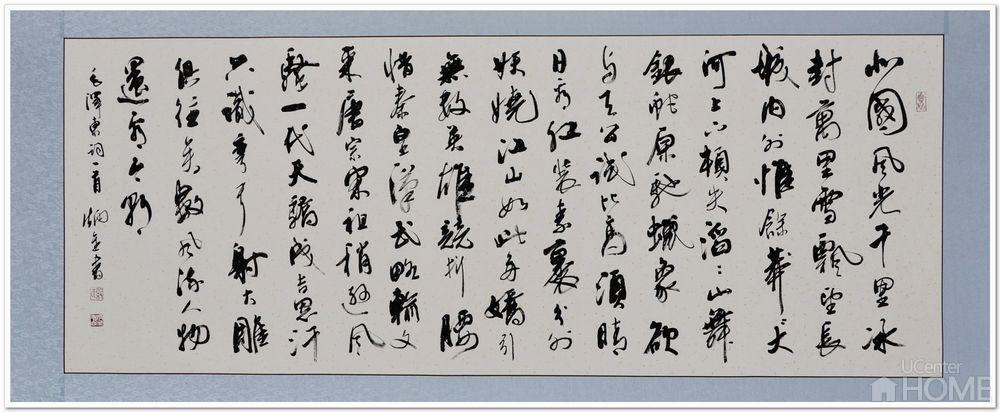 北國風光千里冰
封萬里雪飄望長
城内外惟餘莽〻大
河上下頓失滔〻山舞
銀蛇原馳蠟象欲
与天公試比高須晴
日看紅裝素裹分外
妖嬈江山如此多嬌引
無數英雄競折腰
惜秦皇漢武略輸文
采唐宗宋祖稍遜風
騷一代天驕成吉思汗
只識彎弓射大雕
俱往矣數風流人物
還看今朝
毛澤東詞一首
UCenter
HOME